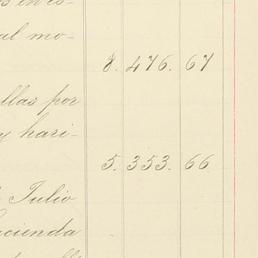 al mo-
8. 476. 67
llas por
y hari-
5. 353. 66
Julio
cienda